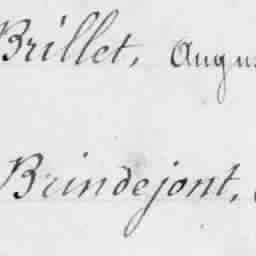 Brillet, Augu
Brindejont,